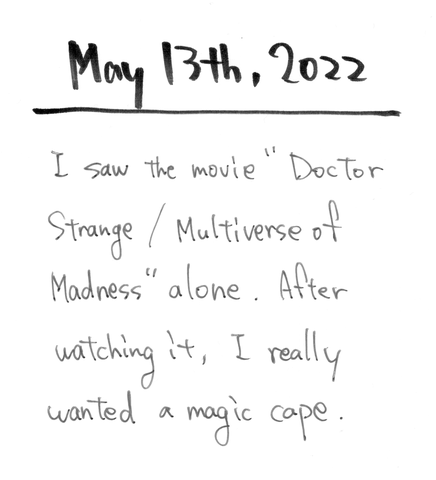 May 13th, 2022
I saw the movie "Doctor
Strange / Multiverse of
Madness" alone. After
watching it, I really
wanted a magic cape.